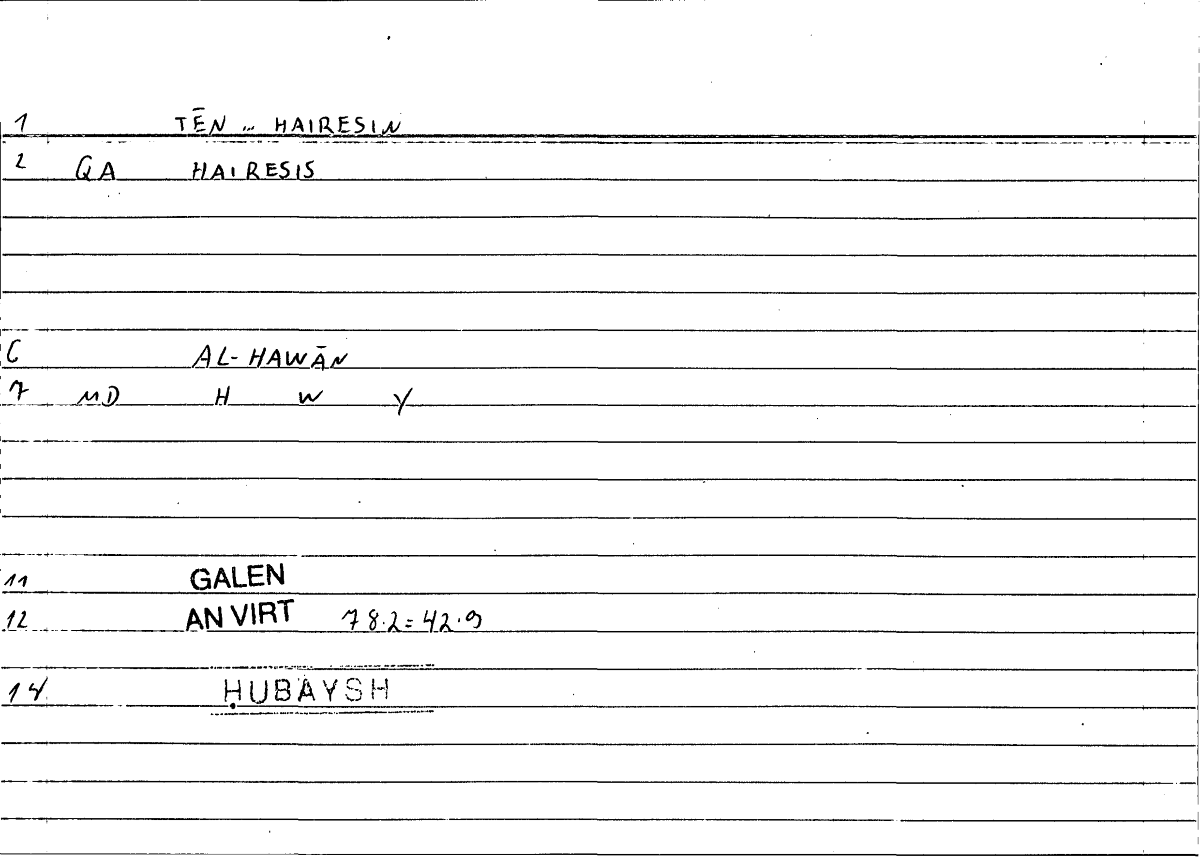 1 TĒN ... HAIRESIN
2 QA HAIRESIS
6 AL-HAWĀN
7 MD H W Y
11 GALEN
12 AN VIRT 78.2=42.9
14 ḤUBAYSH